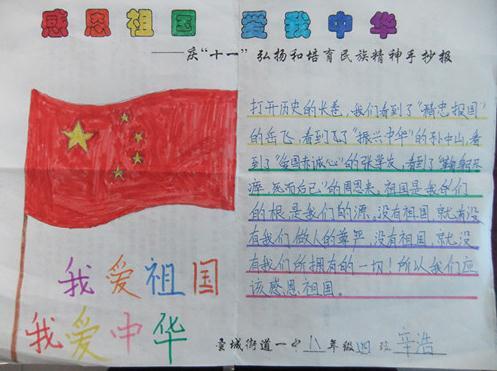 感恩祖国 爱我中华
——庆“十一”弘扬和培育民族精神手抄报
打开历史的长卷，我们看到了“精忠报国”
的岳飞，看到了“振兴中华”的孙中山，看
到了“爱国赤诚心”的张学友，看到了“鞠躬尽
瘁，死而后已”的周恩来。祖国是我们
的根是我们的源。没有祖国，就没
有我们做人的尊严。没有祖国，就没
有我们所拥有的一切！所以我们应
该感恩祖国。
我爱祖国
我爱中华
城街道一中 八年级 四班 辛浩